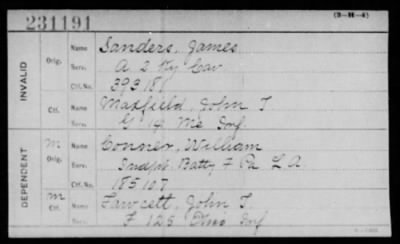 231191
(3-H-4)
INVALID
Orig. Name Sanders, James
Serv. A. 2 Ky Cav
Ctf. No. 393181
Ctf. Name Maxfield, John T
Serv. G 19 Me Inf.
DEPENDENT
M Orig. Name Conner, William
Serv. Indpt. Batty F Pa L. A.
Ctf. No. 185107
M Ctf. Name Fawcett, John T.
Serv. F 126 Ohio Inf